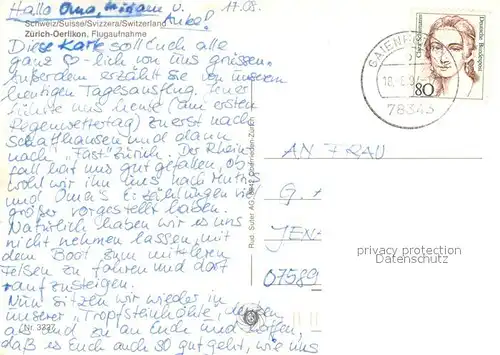 Hallo Oma, Miriam u. Anke! 17.08.
Schweiz/Suisse/Svizzera/Switzerland
Zürich-Oerlikon. Flugaufnahme
Diese Karte soll Euch alle
ganz ♡-lich von uns grüssen.
Außerdem erzählt sie von unserem
heutigen Tagesausflug.
führte uns heute (am ersten
Regenwettertag) zuerst nach
Schaffhausen und dann
nach "Fast" Zürich. Der Rhein-
fall hat uns gut gefallen, ob-
wohl wir ihn uns nach Muttis
und Oma's Erzählungen viel
größer vorgestellt haben.
Natürlich haben wir es uns
nicht nehmen lassen, mit
dem Boot zum mittleren
Felsen zu fahren und dort
raufzusteigen.
Nun sitzen wir wieder in
unserer "Tropfsteinhöhle, denken
ab und zu an Euch und hoffen,
daß es Euch auch so gut geht, wie uns
Nr. 3327
Rud. Suter AG, 8942 Oberrieden-Zürich
Deutsche Bundespost
80
GAIENH
78343
AN FRAU
G.
JEN
07589
privacy protection
Datenschutz